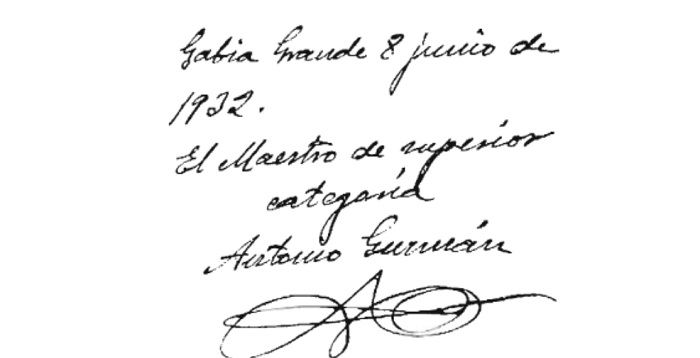 Gabia Grande 8 junio de
1932.
El Maestro de superior
categoría
Antonio Guzmán